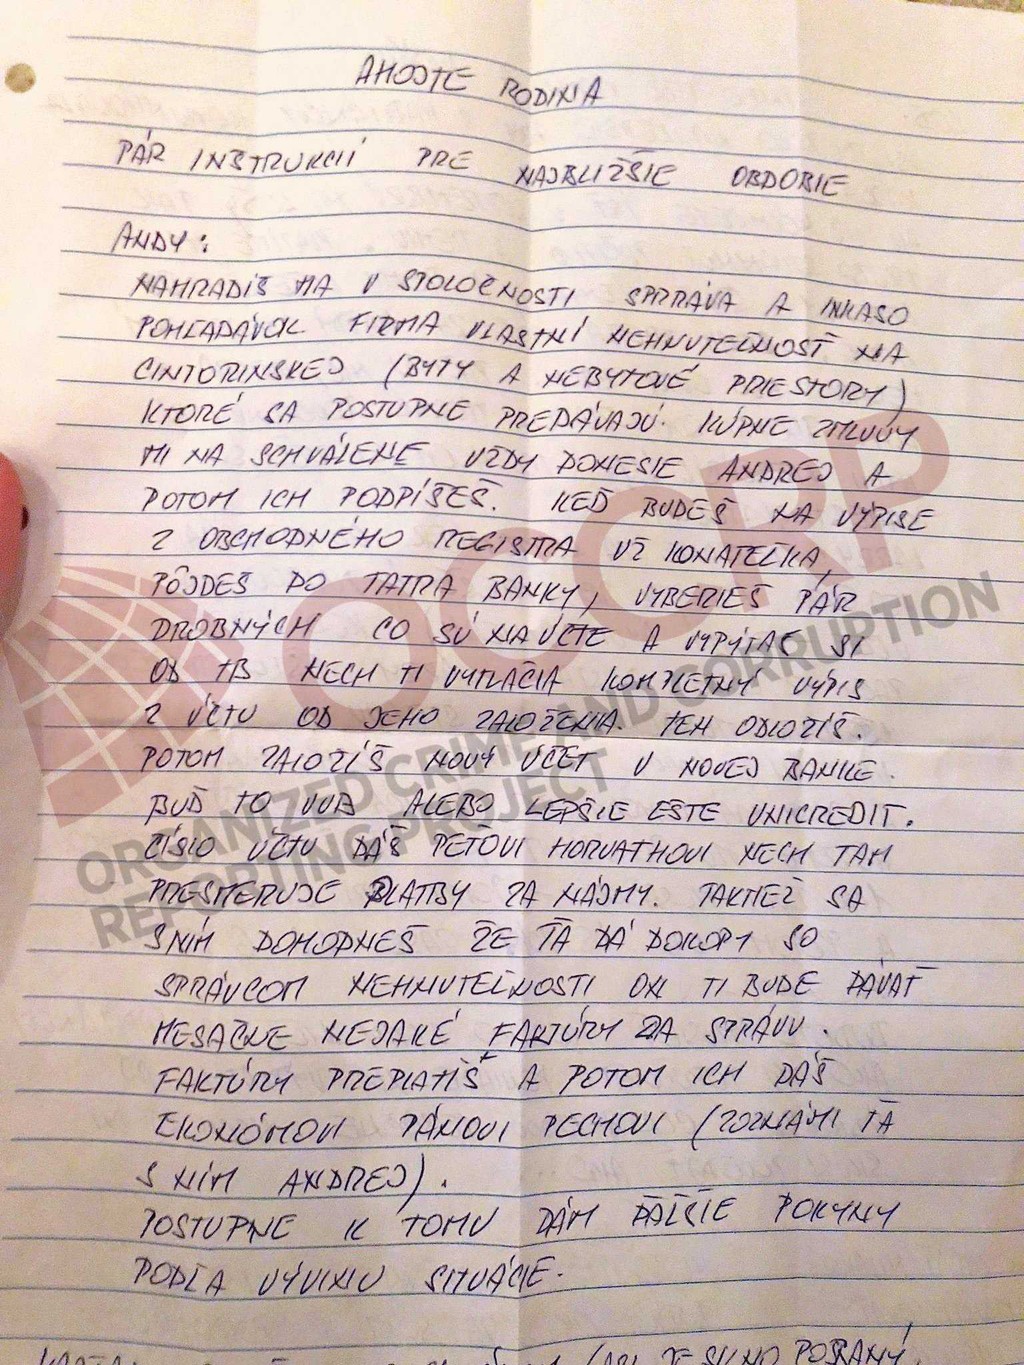 AHOJTE RODINA
PÁR INŠTRUKCIÍ PRE NAJBLIŽŠIE OBDOBIE
ANDY:
NAHRADÍŠ MA V SPOLOČNOSTI SPRPRÁVA A INKASO
POHĽADÁVOK FIRMA VLASTNÍ NEHNUTEĽNOSŤ NA
CINTORINSKEJ (BYTY A NEBYTOVÉ PRIESTORY)
KTORÉ SA POSTUPNE PREDÁVAJÚ. KÚPNE ZMLUVY
MI NA SCHVÁLENE VŽDY DONESIE ANDREJ A
POTOM ICH PODPÍŠEŠ. KEĎ BUDEŠ NA VÝPISE
Z OBCHODNÉHO REGISTRA UŽ KONATEĽKA,
PÔJDEŠ DO TATRA BANKY, VYBERIEŠ PÁR
DROBNÝCH ČO SÚ NA ÚČTE A VYPÝTAŠ SI
OD TB NECH TI VYTLAČIA KOMPLETNÝ VÝPIS
Z ÚČTU OD JEHO ZALOŽENIA. TEN ODLOŽÍŠ.
POTOM ZALOŽÍŠ NOVÝ ÚČET V NOVEJ BANKE.
BUĎ TO VUB ALEBO LEPŠIE EŠTE UNICREDIT.
ČÍSLO ÚČTU DÁŠ PEŤOVI HORVATHOVI NECH TAM
PRESMERUJE PLATBY ZA NÁJMY. TAKTIEŽ SA
S NÍM DOHODNEŠ ŽE ŤA DÁ DOKOPY SO
SPRÁVCOM NEHNUTEĽNOSTI ON TI BUDE DÁVAŤ
MESAČNE NEJAKÉ FAKTÚRY ZA SPRÁVU.
FAKTÚRY PREPLATÍŠ A POTOM ICH DÁŠ
EKONÓMOVI PÁNOVI PECHOVI (ZOZNÁMI ŤA
S NÍM ANDREJ).
POSTUPNE K TOMU DÁM ĎALŠIE POKYNY
PODĽA VÝVINU SITUÁCIE.
JE SILNO POSRANÝ,
OCCRP
ORGANIZED CRIME AND CORRUPTION
REPORTING PROJECT